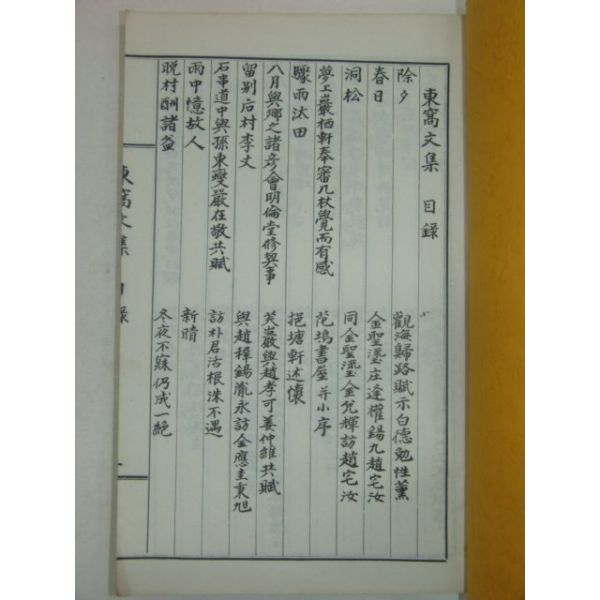 東窩文集 目錄
除夕 觀海歸路賦示白德勉性薰
春日 金聖玉庄逢權錫九趙宅汝
洞松 同金聖玉金允輝訪趙宅汝
夢上巖栖軒奉審几杖覺而有感 范塢書屋并小序
驟雨汰田 挹塘軒述懷
八月與鄉之諸彥會明倫堂修契事 芙巖與趙孝可姜仲雝共賦
留別后村李丈 與趙樟錫胤永訪金應圭秉旭
石事道中與孫東燮嚴在敬共賦 訪朴君活根洙不遇
雨中憶故人 新晴
晩村酬諸益 冬夜不寐仍成一絶
東窩文集 目錄 一